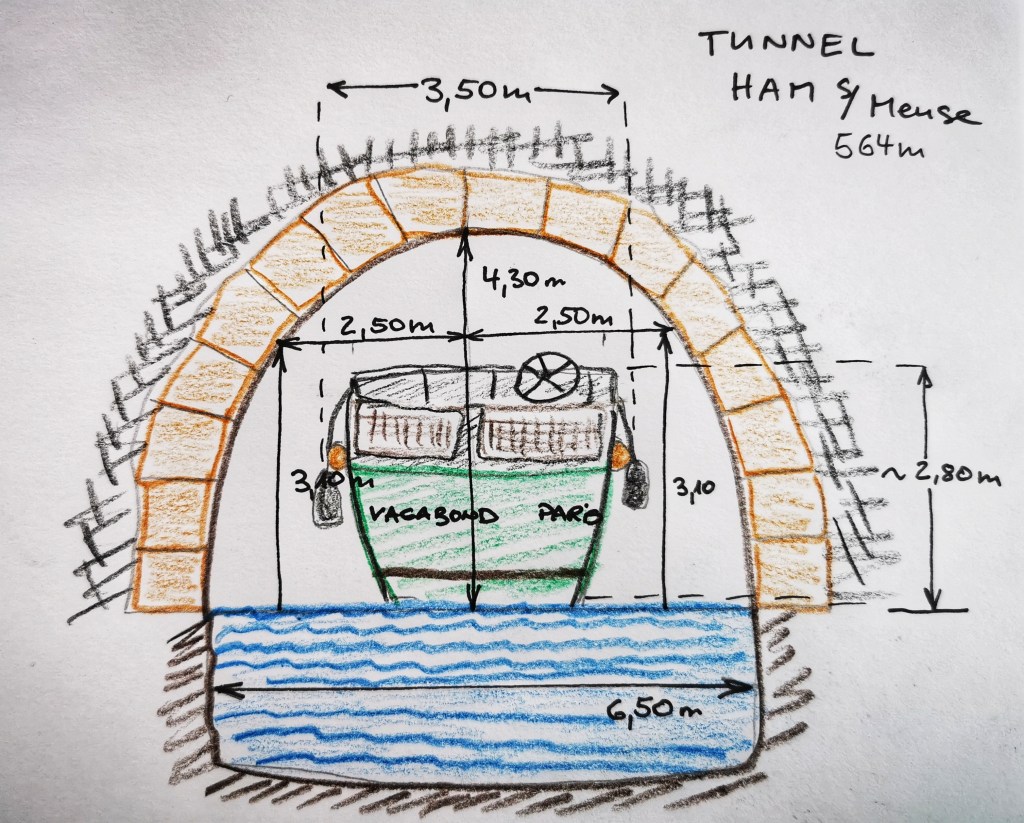 TUNNEL
HAM S/Meuse
564m
3,50m
4,30m
2,50m 2,50m
~2,80m
3,10m
3,10
VAGABOND PARIS
6,50m